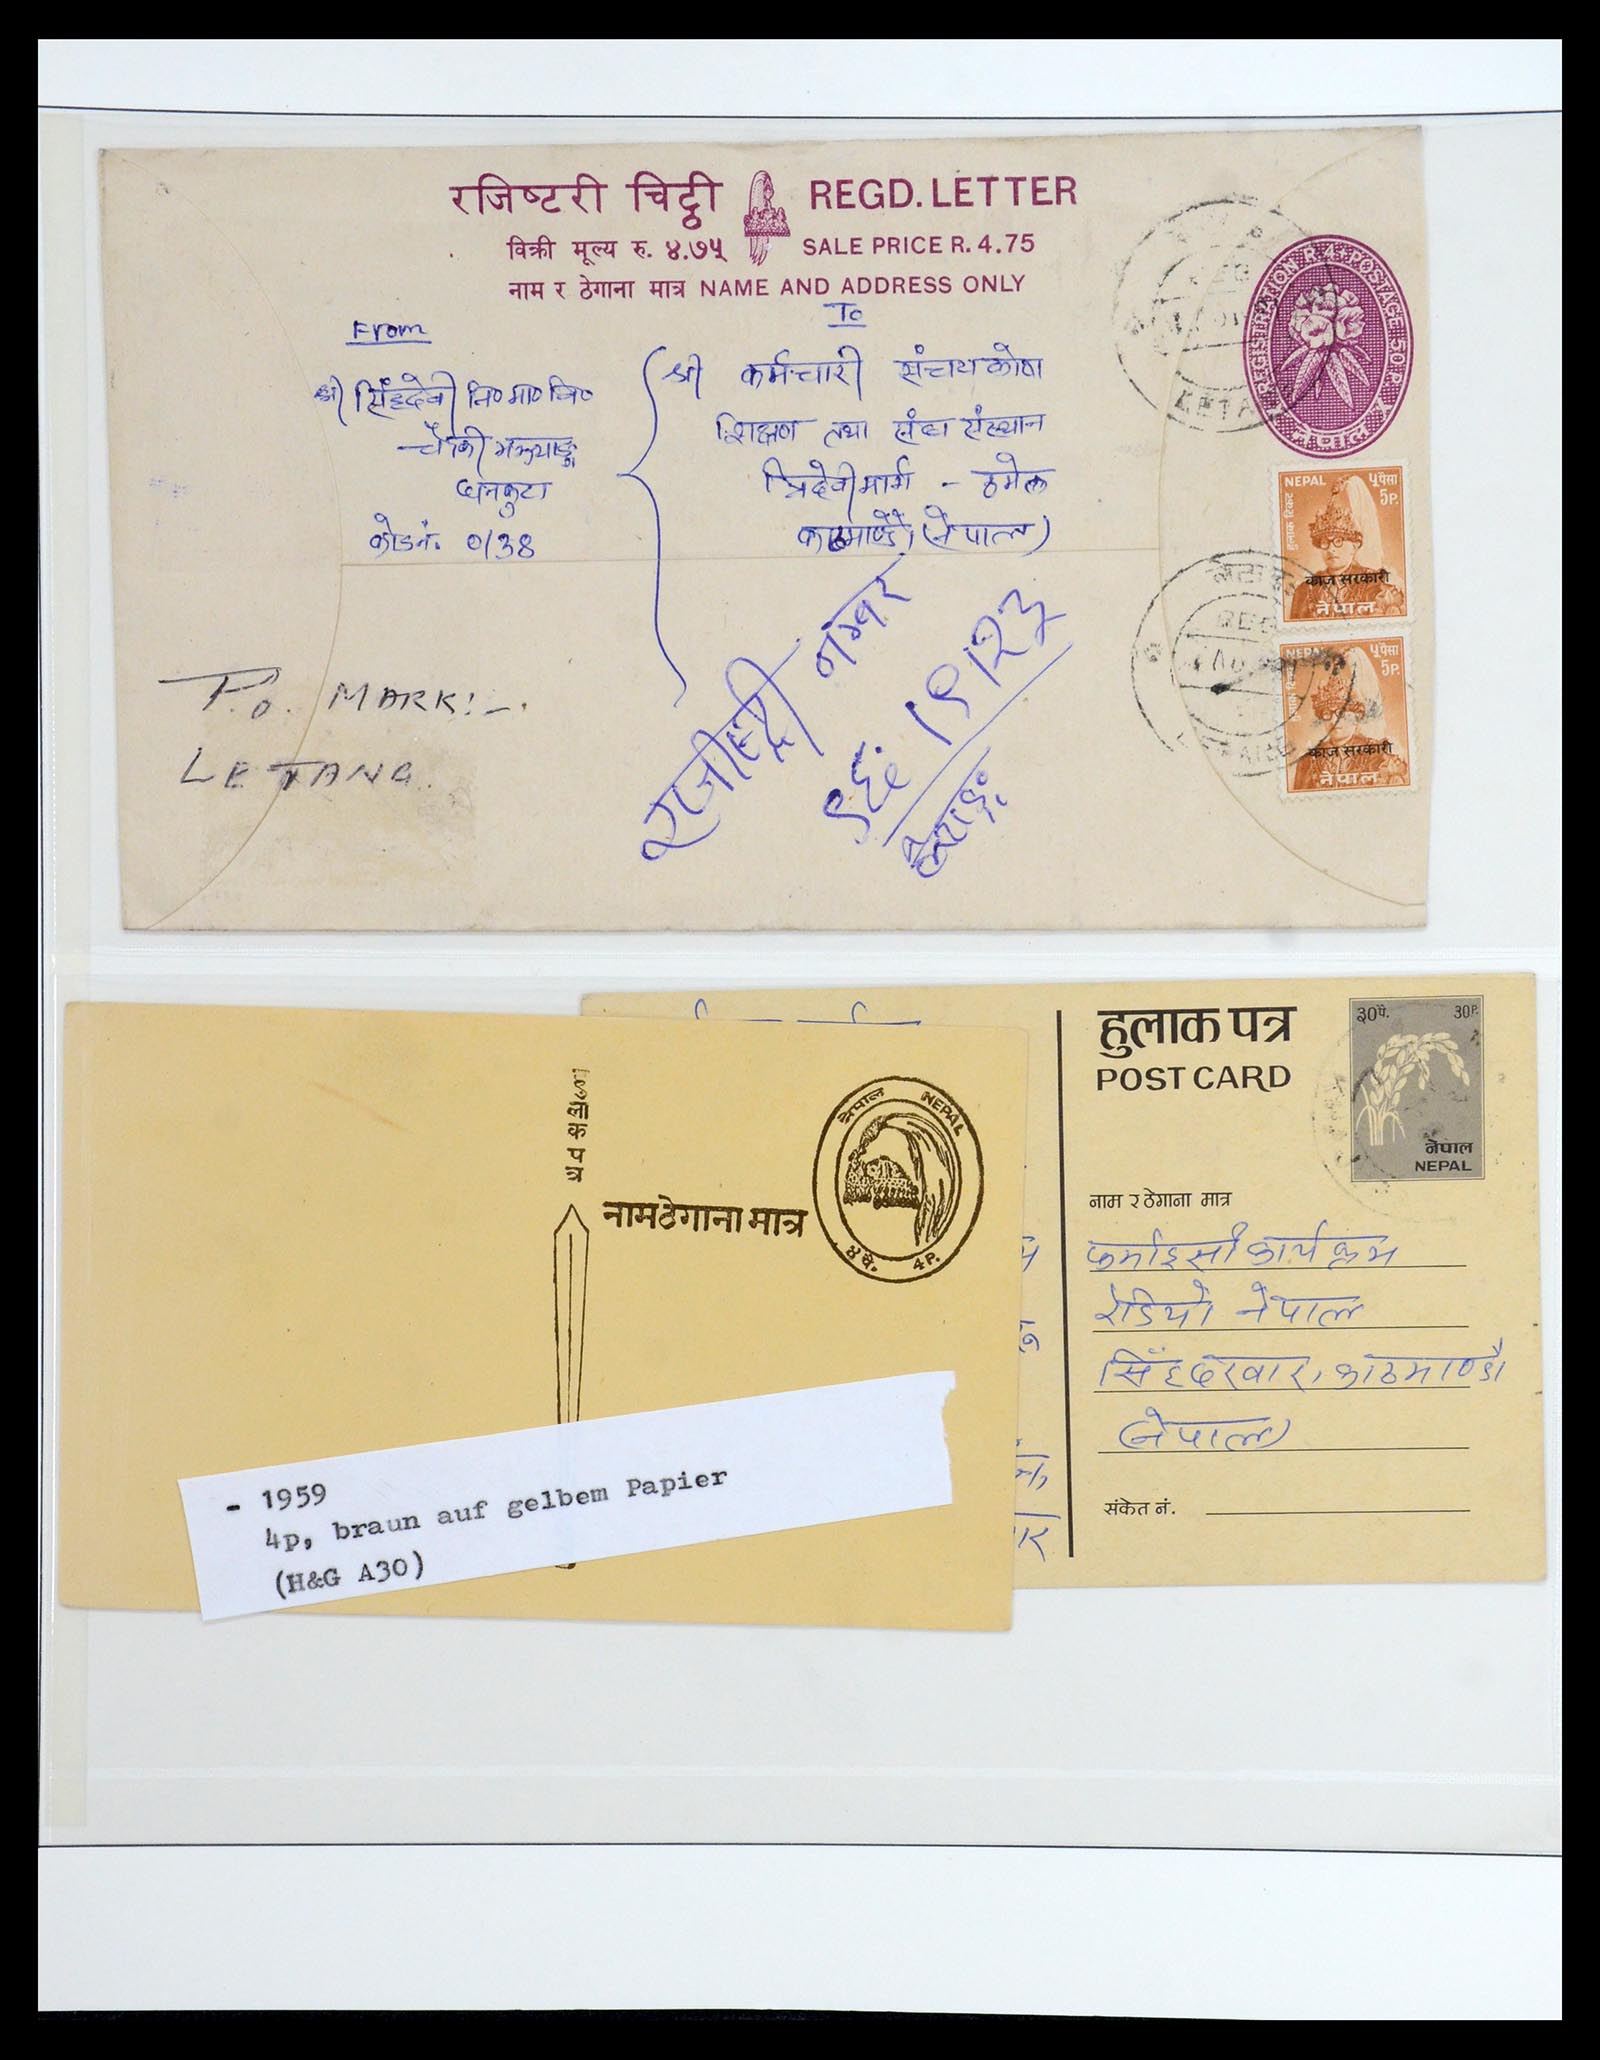 रजिष्टरी चिट्ठी REGD. LETTER
विक्री मूल्य रु. ४.७५ SALE PRICE R. 4.75
नाम र ठेगाना मात्र NAME AND ADDRESS ONLY
From
श्री सिंहदेवी नि० मा० वि०
धनकुटा
कोड नं. 0/38
To
श्री कर्मचारी संचयकोष
शिक्षण तथा संघ संस्थान
त्रिदेवी मार्ग - ठमेल
काठमाण्डौ (नेपाल)
REGISTRATION R.4. POSTAGE 50 P.
नेपाल
NEPAL ५ पैसा
5P.
हुलाक टिकट
काज सरकारी
नेपाल
NEPAL ५ पैसा
5P.
काज सरकारी
नेपाल
REG
P.O. MARK:-
LETANG.
रजीष्ट्री नम्बर
हुलाक पत्र
POST CARD
३०पै. 30P.
नेपाल
NEPAL
नाम र ठेगाना मात्र
फर्माइसी कार्यक्रम
रेडियो नेपाल
सिंहदरवार, काठमाण्डौ
(नेपाल)
संकेत नं.
नेपाल NEPAL
४ पै. 4P.
नामठेगाना मात्र
- 1959
4p, braun auf gelbem Papier
(H&G A30)